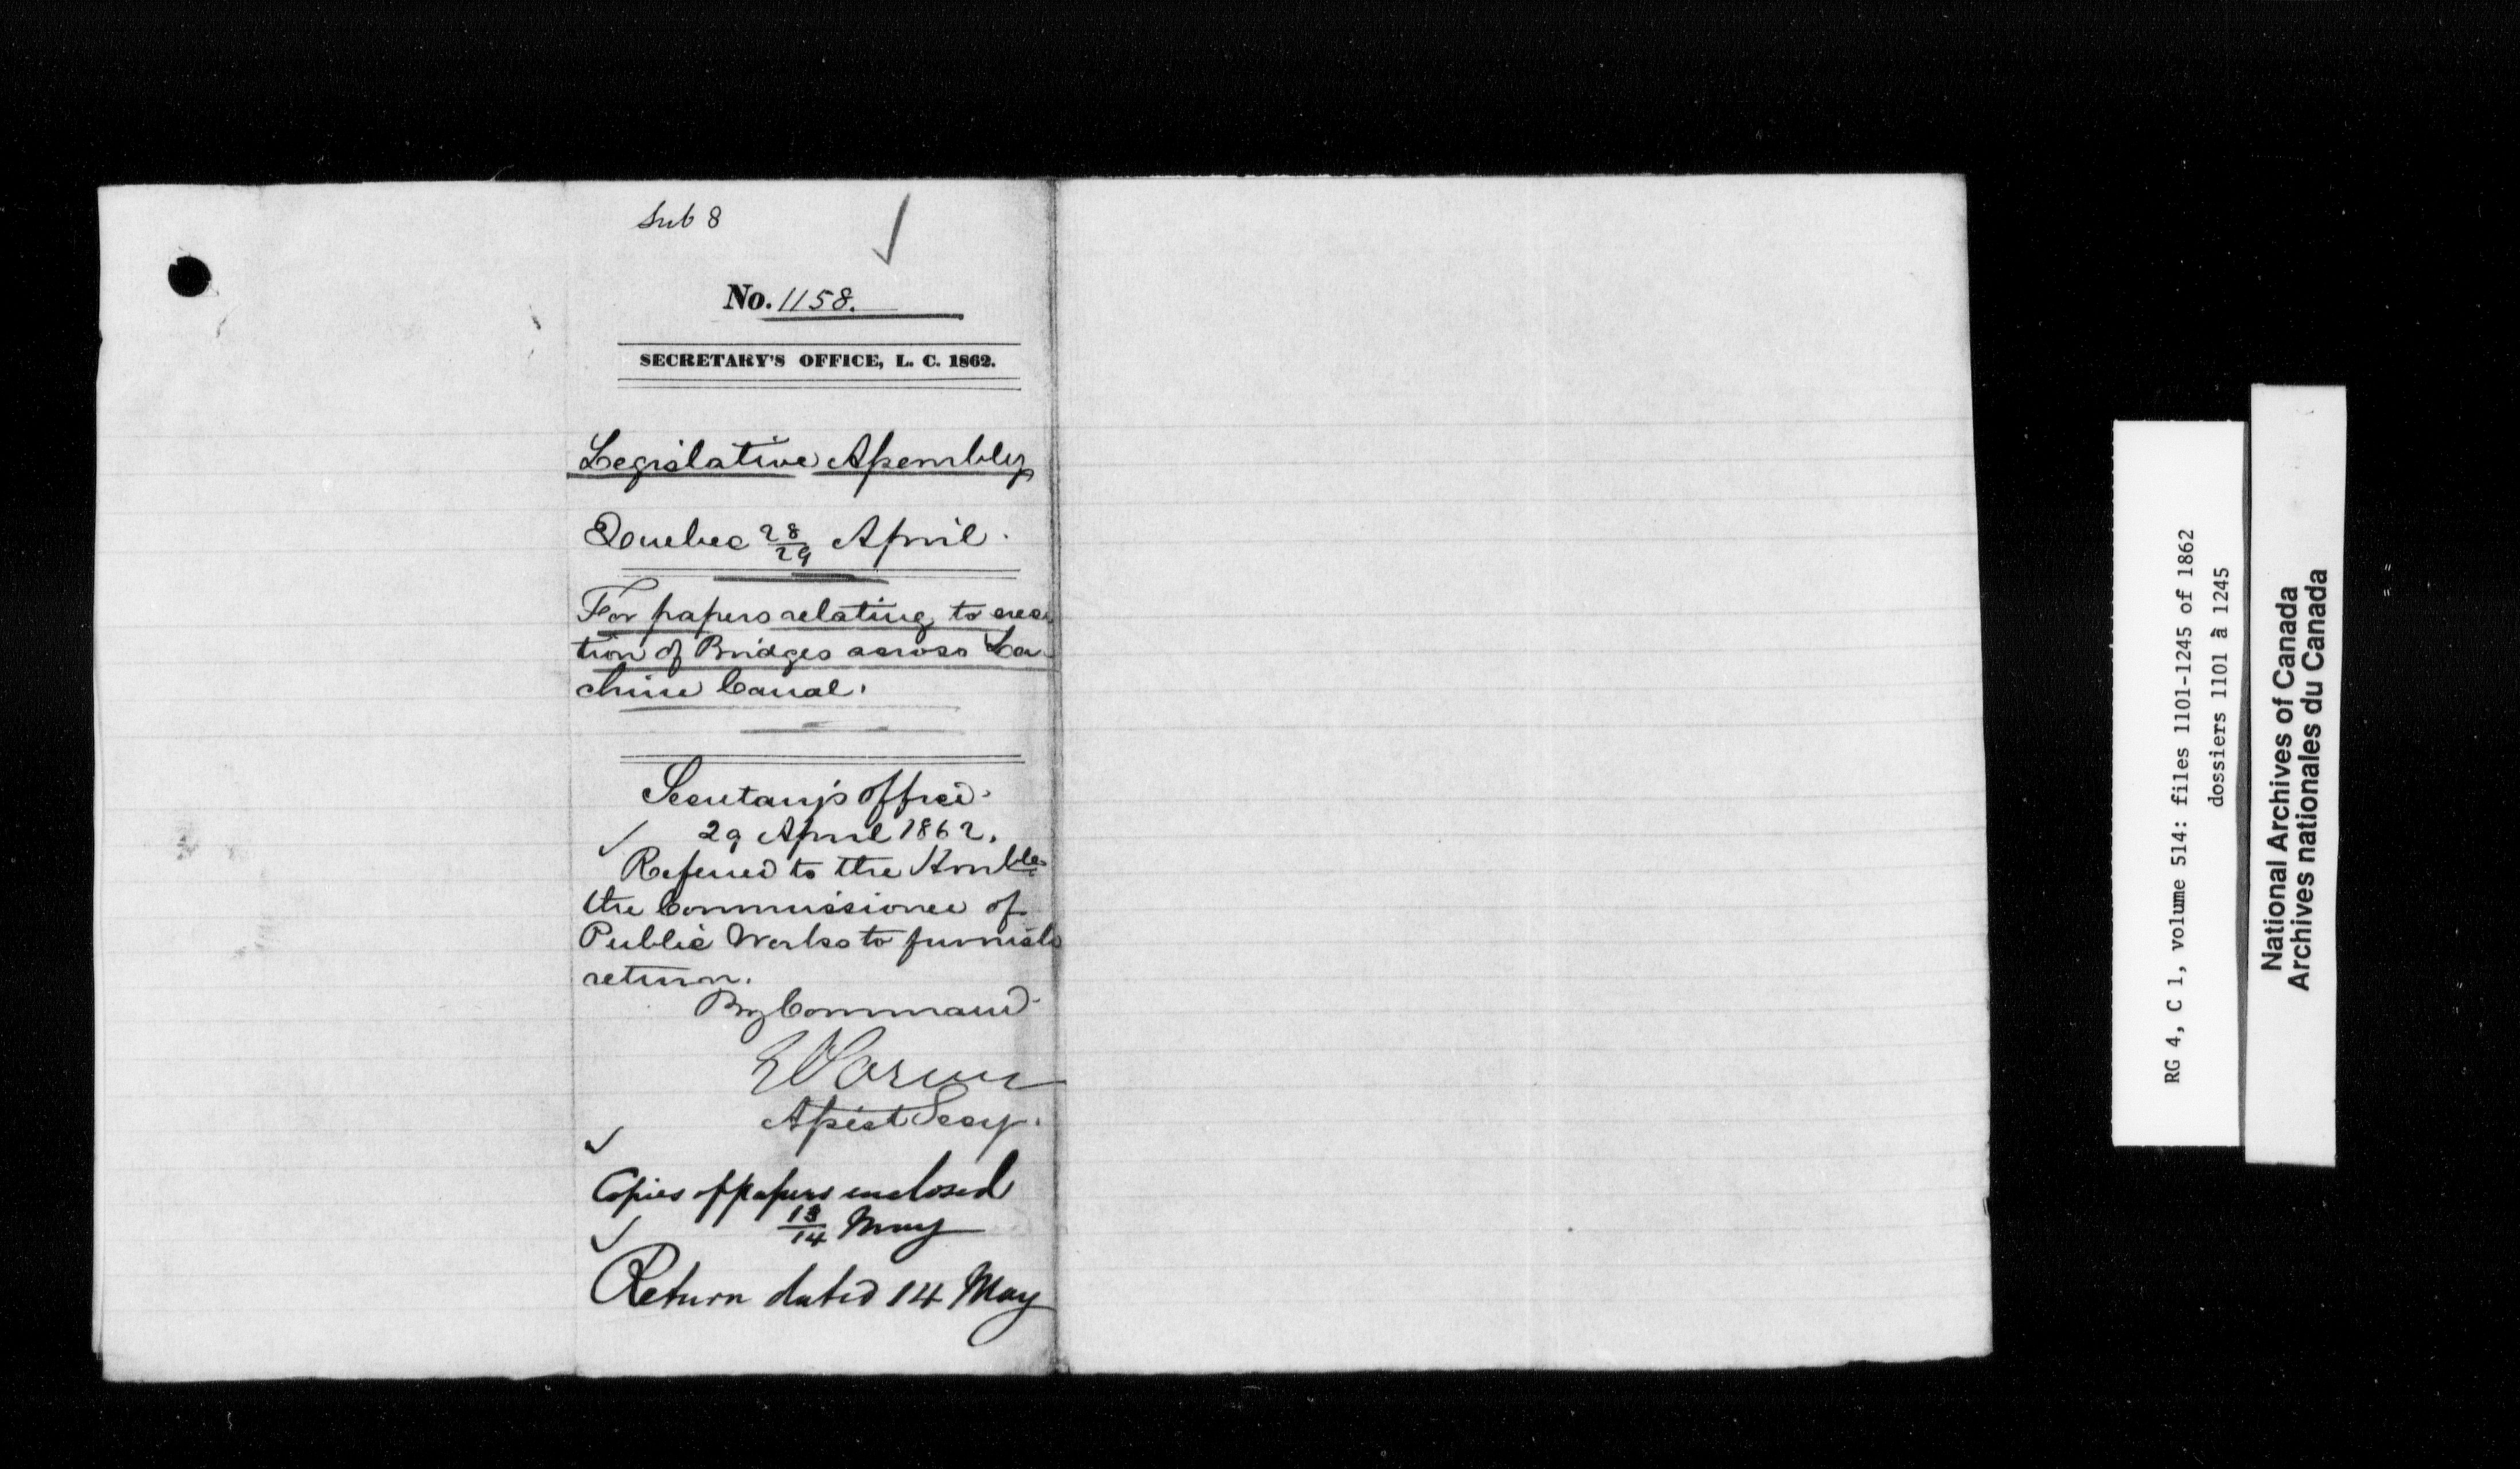 Sub 8
No. 1158.
SECRETARY'S OFFICE, L. C. 1862.
Legislative Assembly
Quebec 28/29 April.
For papers relating to erec-
tion of Bridges across La-
chine Canal.
Secretary's Office.
29 April 1862.
Referred to the Honble
the Commissioner of
Public Works to furnish
return.
By Command
Assist Secy.
Copies of papers enclosed
13/14 May
Return dated 14 May
RG 4, C 1, volume 514: files 1101-1245 of 1862
dossiers 1101 à 1245
National Archives of Canada
Archives nationales du Canada